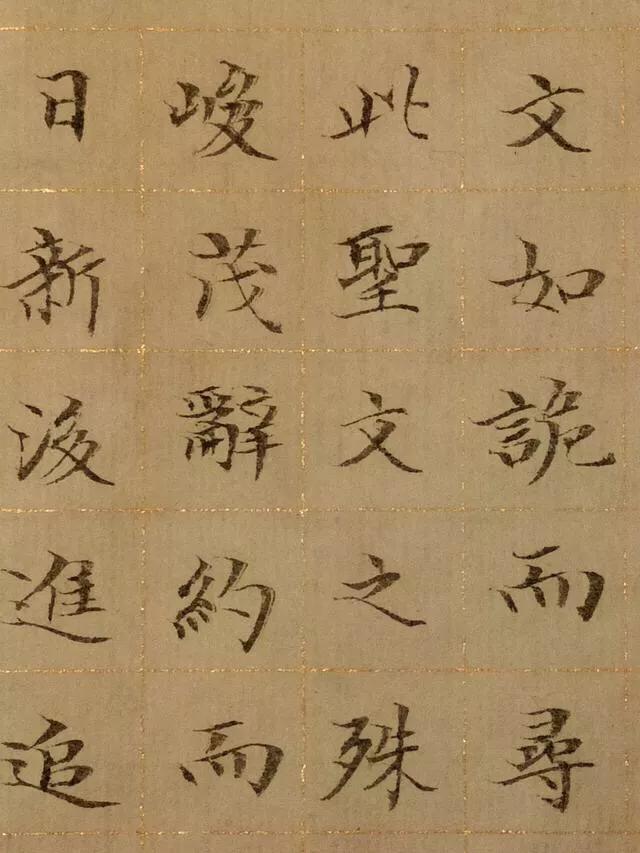 文如詭而尋
此聖文之殊
峻茂辭約而
日新後進追